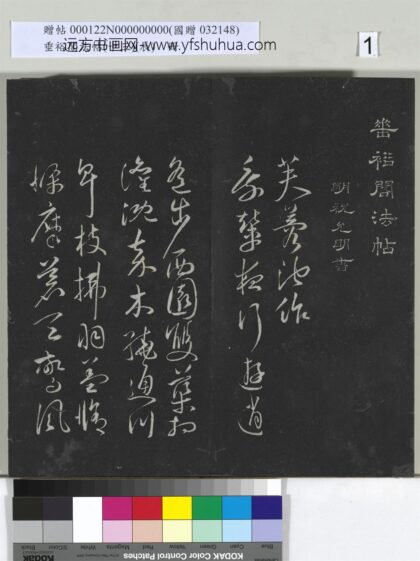 贈帖 000122N000000000(國贈 032148)
远方书画网 www.yfshuhua.com
1
垂裕閣法帖
明祝允明書
芙蓉池作
乘輦夜行遊逍
遙步西園雙渠相
灌溉嘉木繞通川
卑枝拂羽蓋脩
條摩蒼天驚風
Blue Cyan Green Yellow Red Magenta White 3/Color Black
KODAK Color Control Patches
Kodak